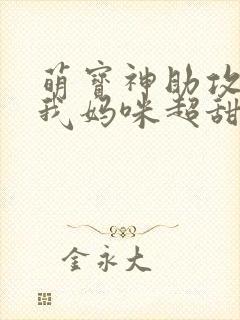 萌寳神助攻
我妈咪超甜
金永大